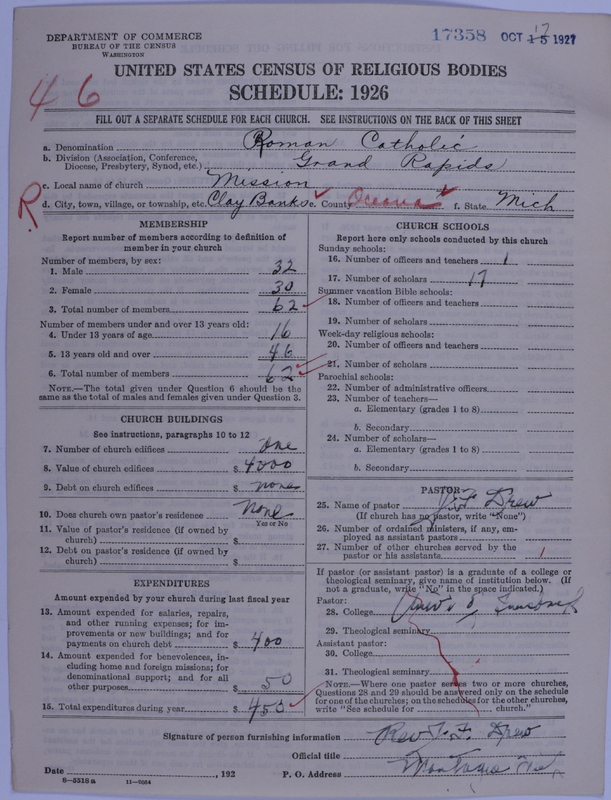 DEPARTMENT OF COMMERCE
BUREAU OF THE CENSUS
WASHINGTON
17358 OCT 15 1927
17
UNITED STATES CENSUS OF RELIGIOUS BODIES
SCHEDULE: 1926
46
FILL OUT A SEPARATE SCHEDULE FOR EACH CHURCH. SEE INSTRUCTIONS ON THE BACK OF THIS SHEET
a. Denomination Roman Catholic
b. Division (Association, Conference, Diocese, Presbytery, Synod, etc.) Grand Rapids
c. Local name of church Mission
R
d. City, town, village, or township, etc. Clay Banks e. County Oceana f. State Mich
MEMBERSHIP
Report number of members according to definition of
member in your church
Number of members, by sex:
1. Male 32
2. Female 30
3. Total number of members 62
Number of members under and over 13 years old:
4. Under 13 years of age 16
5. 13 years old and over 46
6. Total number of members 62
NOTE.—The total given under Question 6 should be
same as the total of males and females given under Question 3.
CHURCH BUILDINGS
See instructions, paragraphs 10 to 12
7. Number of church edifices one
8. Value of church edifices $ 4000
9. Debt on church edifices $ none
10. Does church own pastor's residence none
Yes or No
11. Value of pastor's residence (if owned by
church) $
12. Debt on pastor's residence (if owned by
church) $
EXPENDITURES
Amount expended by your church during last fiscal year
13. Amount expended for salaries, repairs,
and other running expenses; for im-
provements or new buildings; and for
payments on church debt $ 400
14. Amount expended for benevolences, in-
cluding home and foreign missions; for
denominational support; and for all
other purposes $ 50
15. Total expenditures during year $ 450
CHURCH SCHOOLS
Report here only schools conducted by this church
Sunday schools:
16. Number of officers and teachers 1
17. Number of scholars 17
Summer vacation Bible schools:
18. Number of officers and teachers
19. Number of scholars
Week-day religious schools:
20. Number of officers and teachers
21. Number of scholars
Parochial schools:
22. Number of administrative officers
23. Number of teachers—
a. Elementary (grades 1 to 8)
b. Secondary
24. Number of scholars—
a. Elementary (grades 1 to 8)
b. Secondary
PASTOR
25. Name of pastor J. F. Drew
(If church has no pastor, write "None")
26. Number of ordained ministers, if any, em-
ployed as assistant pastors
27. Number of other churches served by the
pastor or his assistants 1
If pastor (or assistant pastor) is a graduate of a college or
theological seminary, give name of institution below. (If
not a graduate, write "No" in the space indicated.)
Pastor:
28. College
29. Theological seminary
Assistant pastor:
30. College
31. Theological seminary
NOTE.—Where one pastor serves two or more churches,
Questions 28 and 29 should be answered only on the schedule
for one of the churches; on the schedules for the other churches,
write "See schedule for church."
Signature of person furnishing information Rev J. F. Drew
Official title
Date , 192 P. O. Address Montague
8—5518 a 11—9064